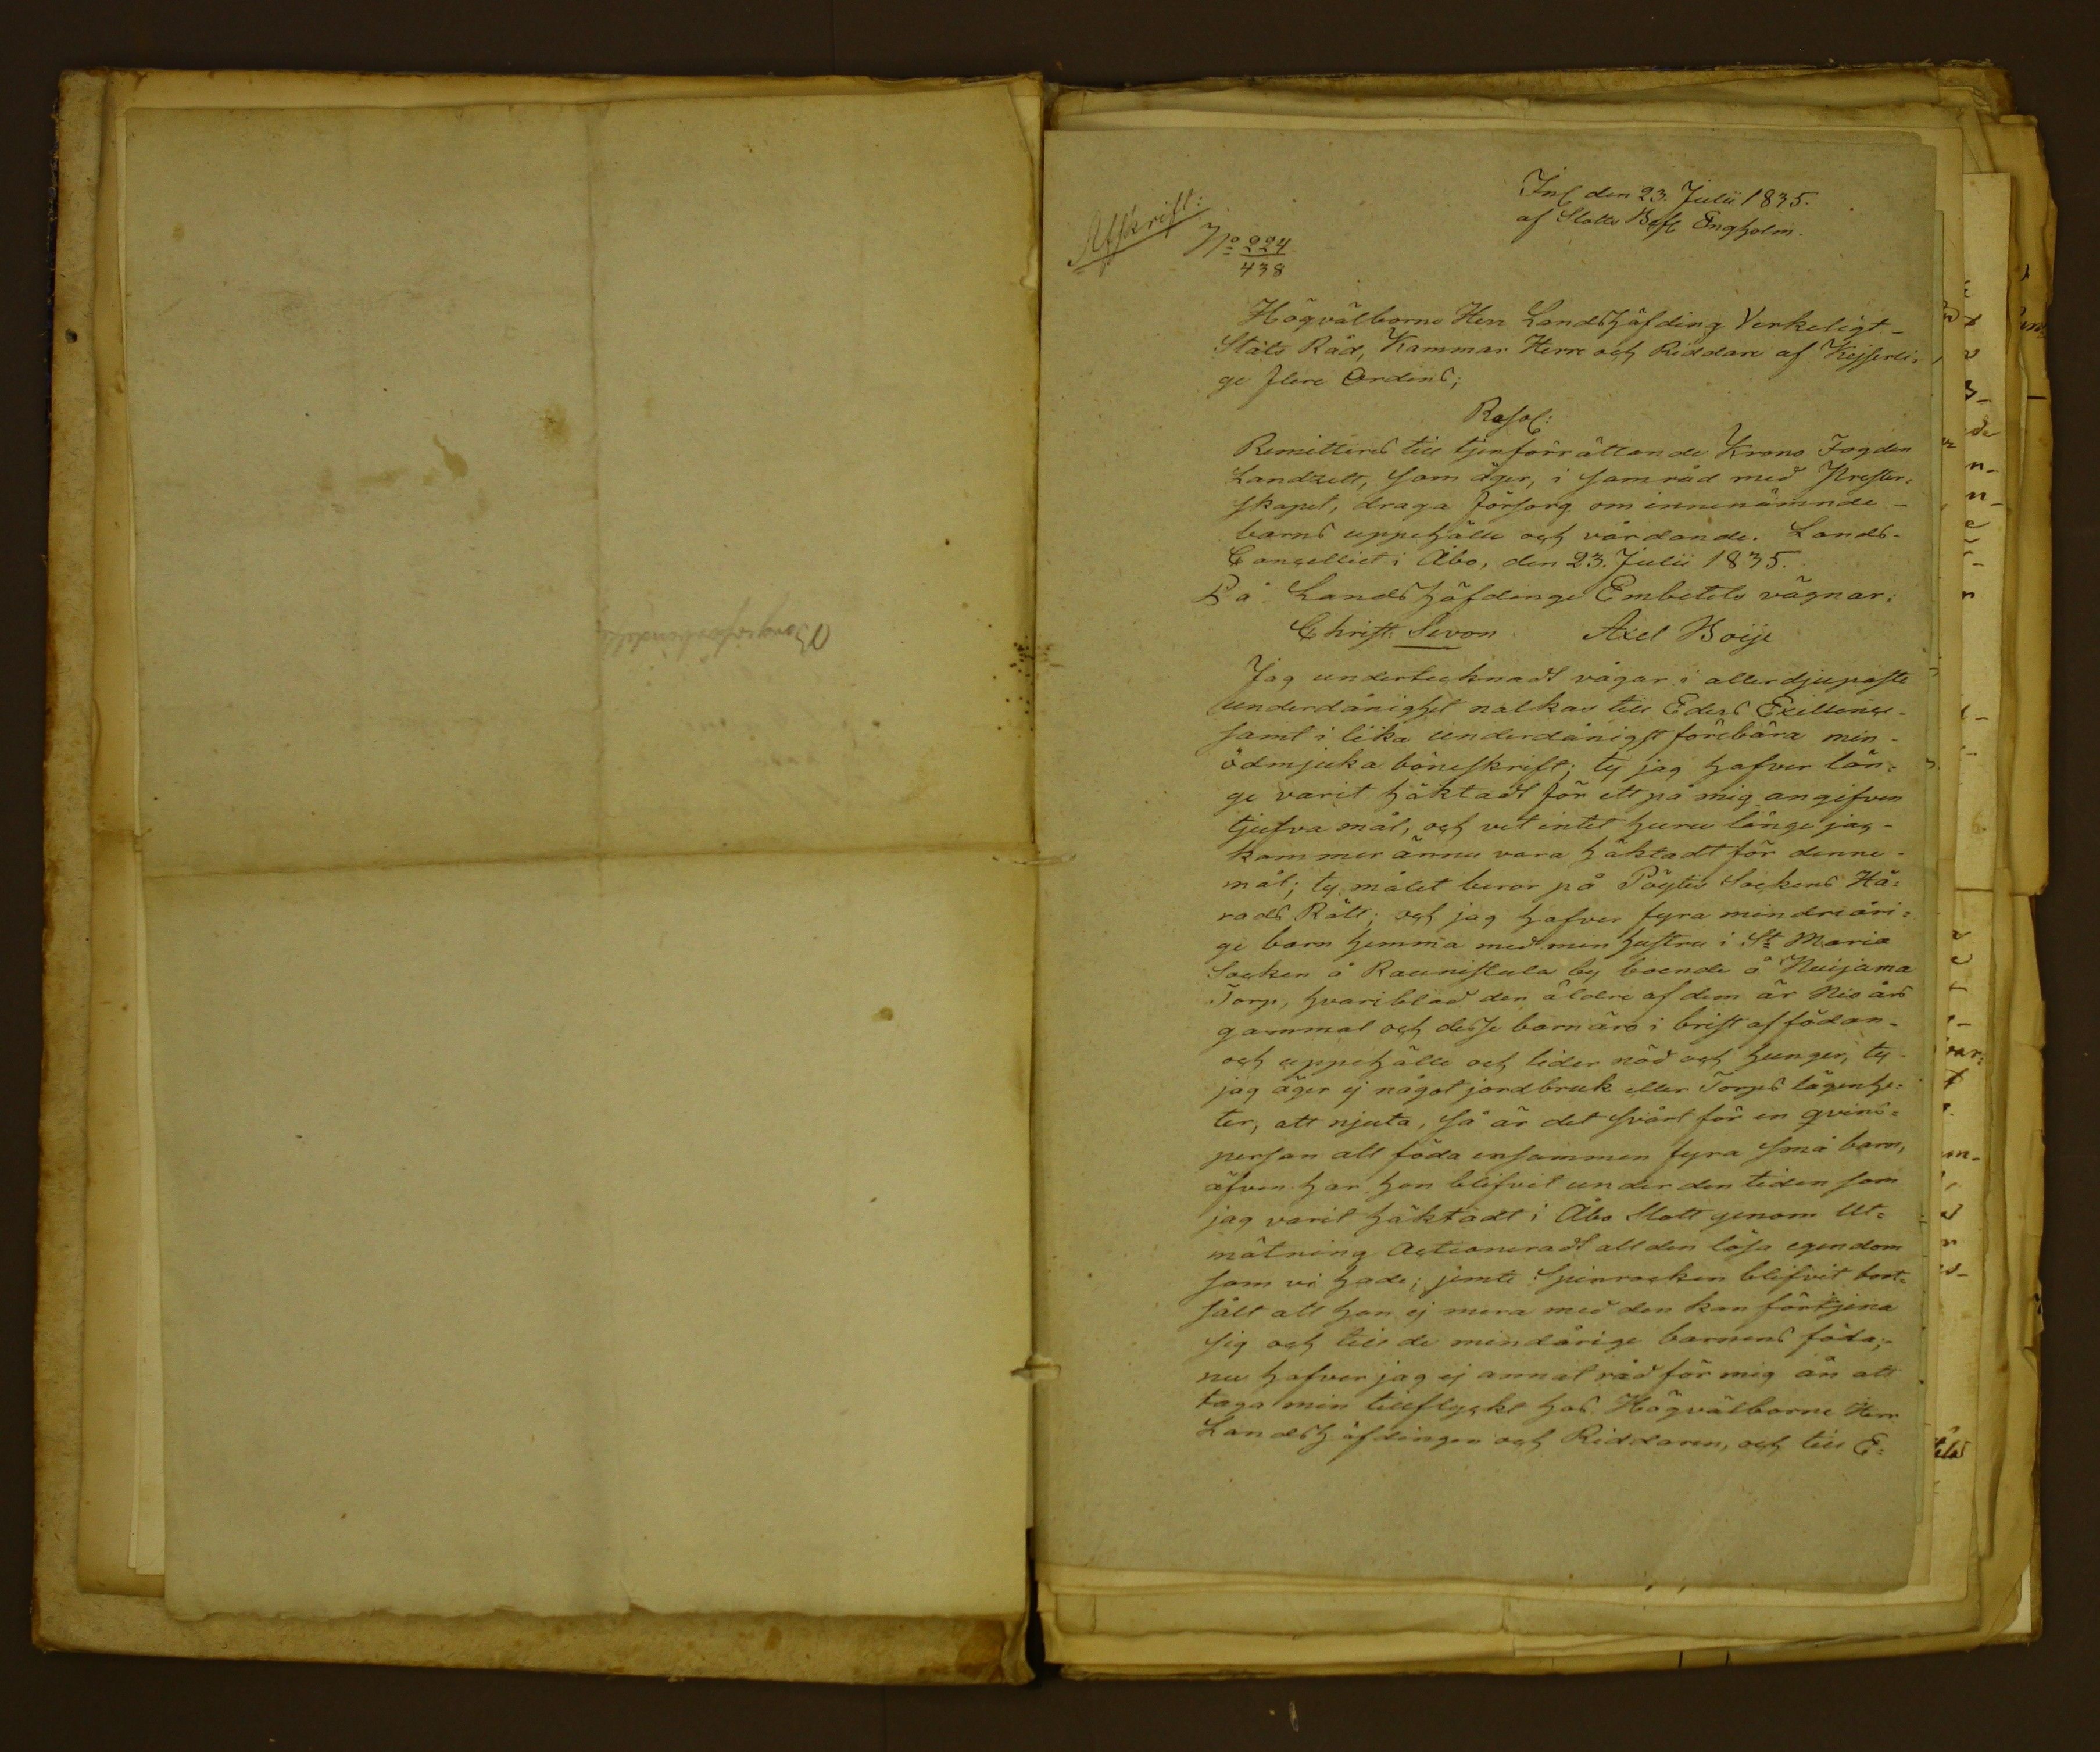 Afskrift:
Inl den 23. Julii 1835.
af Slotts Bef Engholm.
No 224
438
Högvälborne Herr Landshöfding Verkeligt-
Stats Råd, Kammar Herre och Riddare af Kejserli=
ge flere Ordens;
Resol:
Remitteras till tjenförrättande Krono Fogden
Landzett, som äger, i samråd med Prester=
skapet, draga försorg om innenämnde-
barns uppehälle och vårdande. Lands-
Cancelliet i Åbo, den 23. Julii 1835.
På Landshöfdinge Embetets vägnar:
Christ. Sevon Axel Boije
Jag undertecknadt vågar i allerdjupaste
underdånighet nalkas till Eders Exillence-
samt i lika underdånigst förebära min-
ödmjuka böneskrift; ty jag hafver län=
ge varit häktadt för ett på mig angifven
tjufva mål, och vet intet huru länge jag-
kommer ännu vara häktadt för denne-
mål; ty målet beror på Pöytis Sockens Hä=
rads Rätt; och jag hafver fyra mindreåri=
ge barn hemma med min hustru i St Marie
Socken å Raunistula by boende å Huijama
Torp, hvaribland den äldre af dem är Nio års
gammal och desse barn äro i brist af födan-
och uppehälle och lider nöd och hunger, ty-
jag äger ej något jordbruk eller Torps lägenhe=
ter, att njuta, så är det svårt för en qvins=
person att föda ensammen fyra små barn,
äfven har hon blifvit under den tiden som
jag varit häktadt i Åbo Slott genom Ut=
mätning Actioneradt all den lösa egendom
som vi hade; jemte Spinrocken blifvit bort=
sålt att hon ej mera med den kan förtjena
sig och till de mindårige barnens föda;-
nu hafver jag ej annat råd för mig än att
taga min tillflyckt hos Högvälborne Herr
Landshöfdingen och Riddaren, och till E=